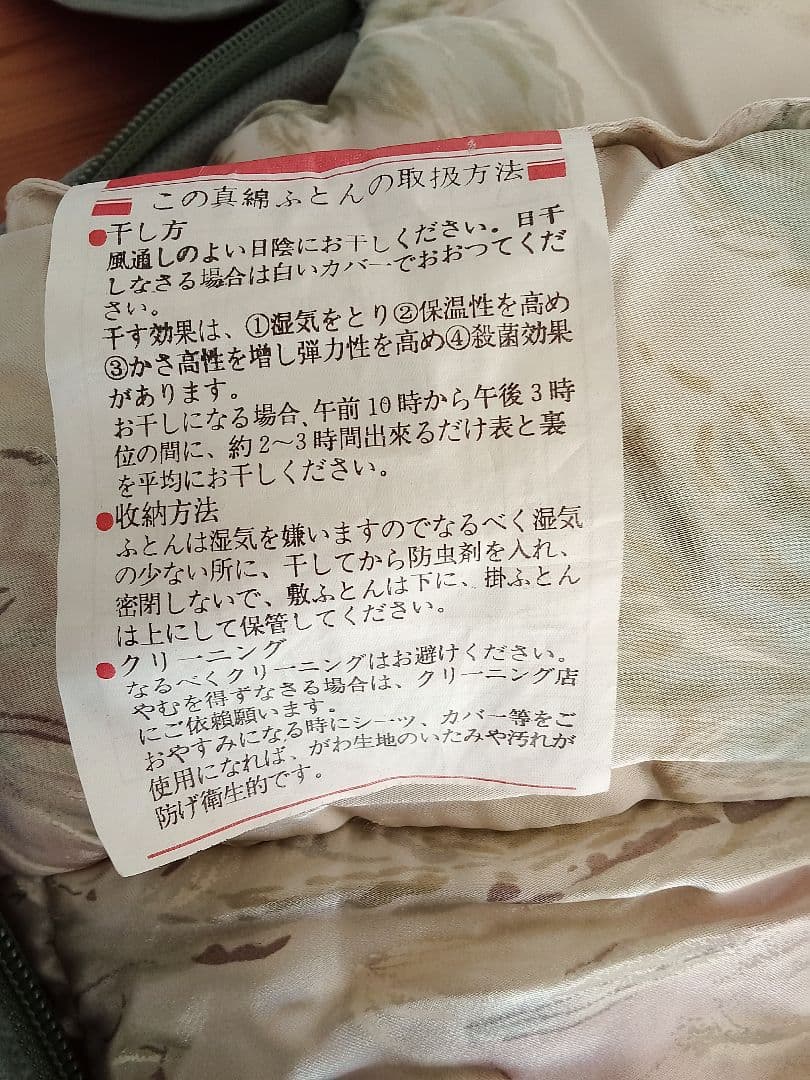 この真綿ふとんの取扱方法
●干し方
風通しのよい日陰にお干しください。日干
しなさる場合は白いカバーでおおつてくだ
さい。
干す効果は、①湿気をとり②保温性を高め
③かさ高性を増し弾力性を高め④殺菌効果
があります。
お干しになる場合、午前10時から午後3時
位の間に、約2〜3時間出來るだけ表と裏
を平均にお干しください。
●收納方法
ふとんは湿気を嫌いますのでなるべく湿気
の少ない所に、干してから防虫剤を入れ、
密閉しないで、敷ふとんは下に、掛ふとん
は上にして保管してください。
●クリーニング
なるべくクリーニングはお避けください。
やむを得ずなさる場合は、クリーニング店
にご依頼願います。
おやすみになる時にシーッ、カバー等をご
使用になれば、がわ生地のいたみや汚れが
防げ衛生的です。